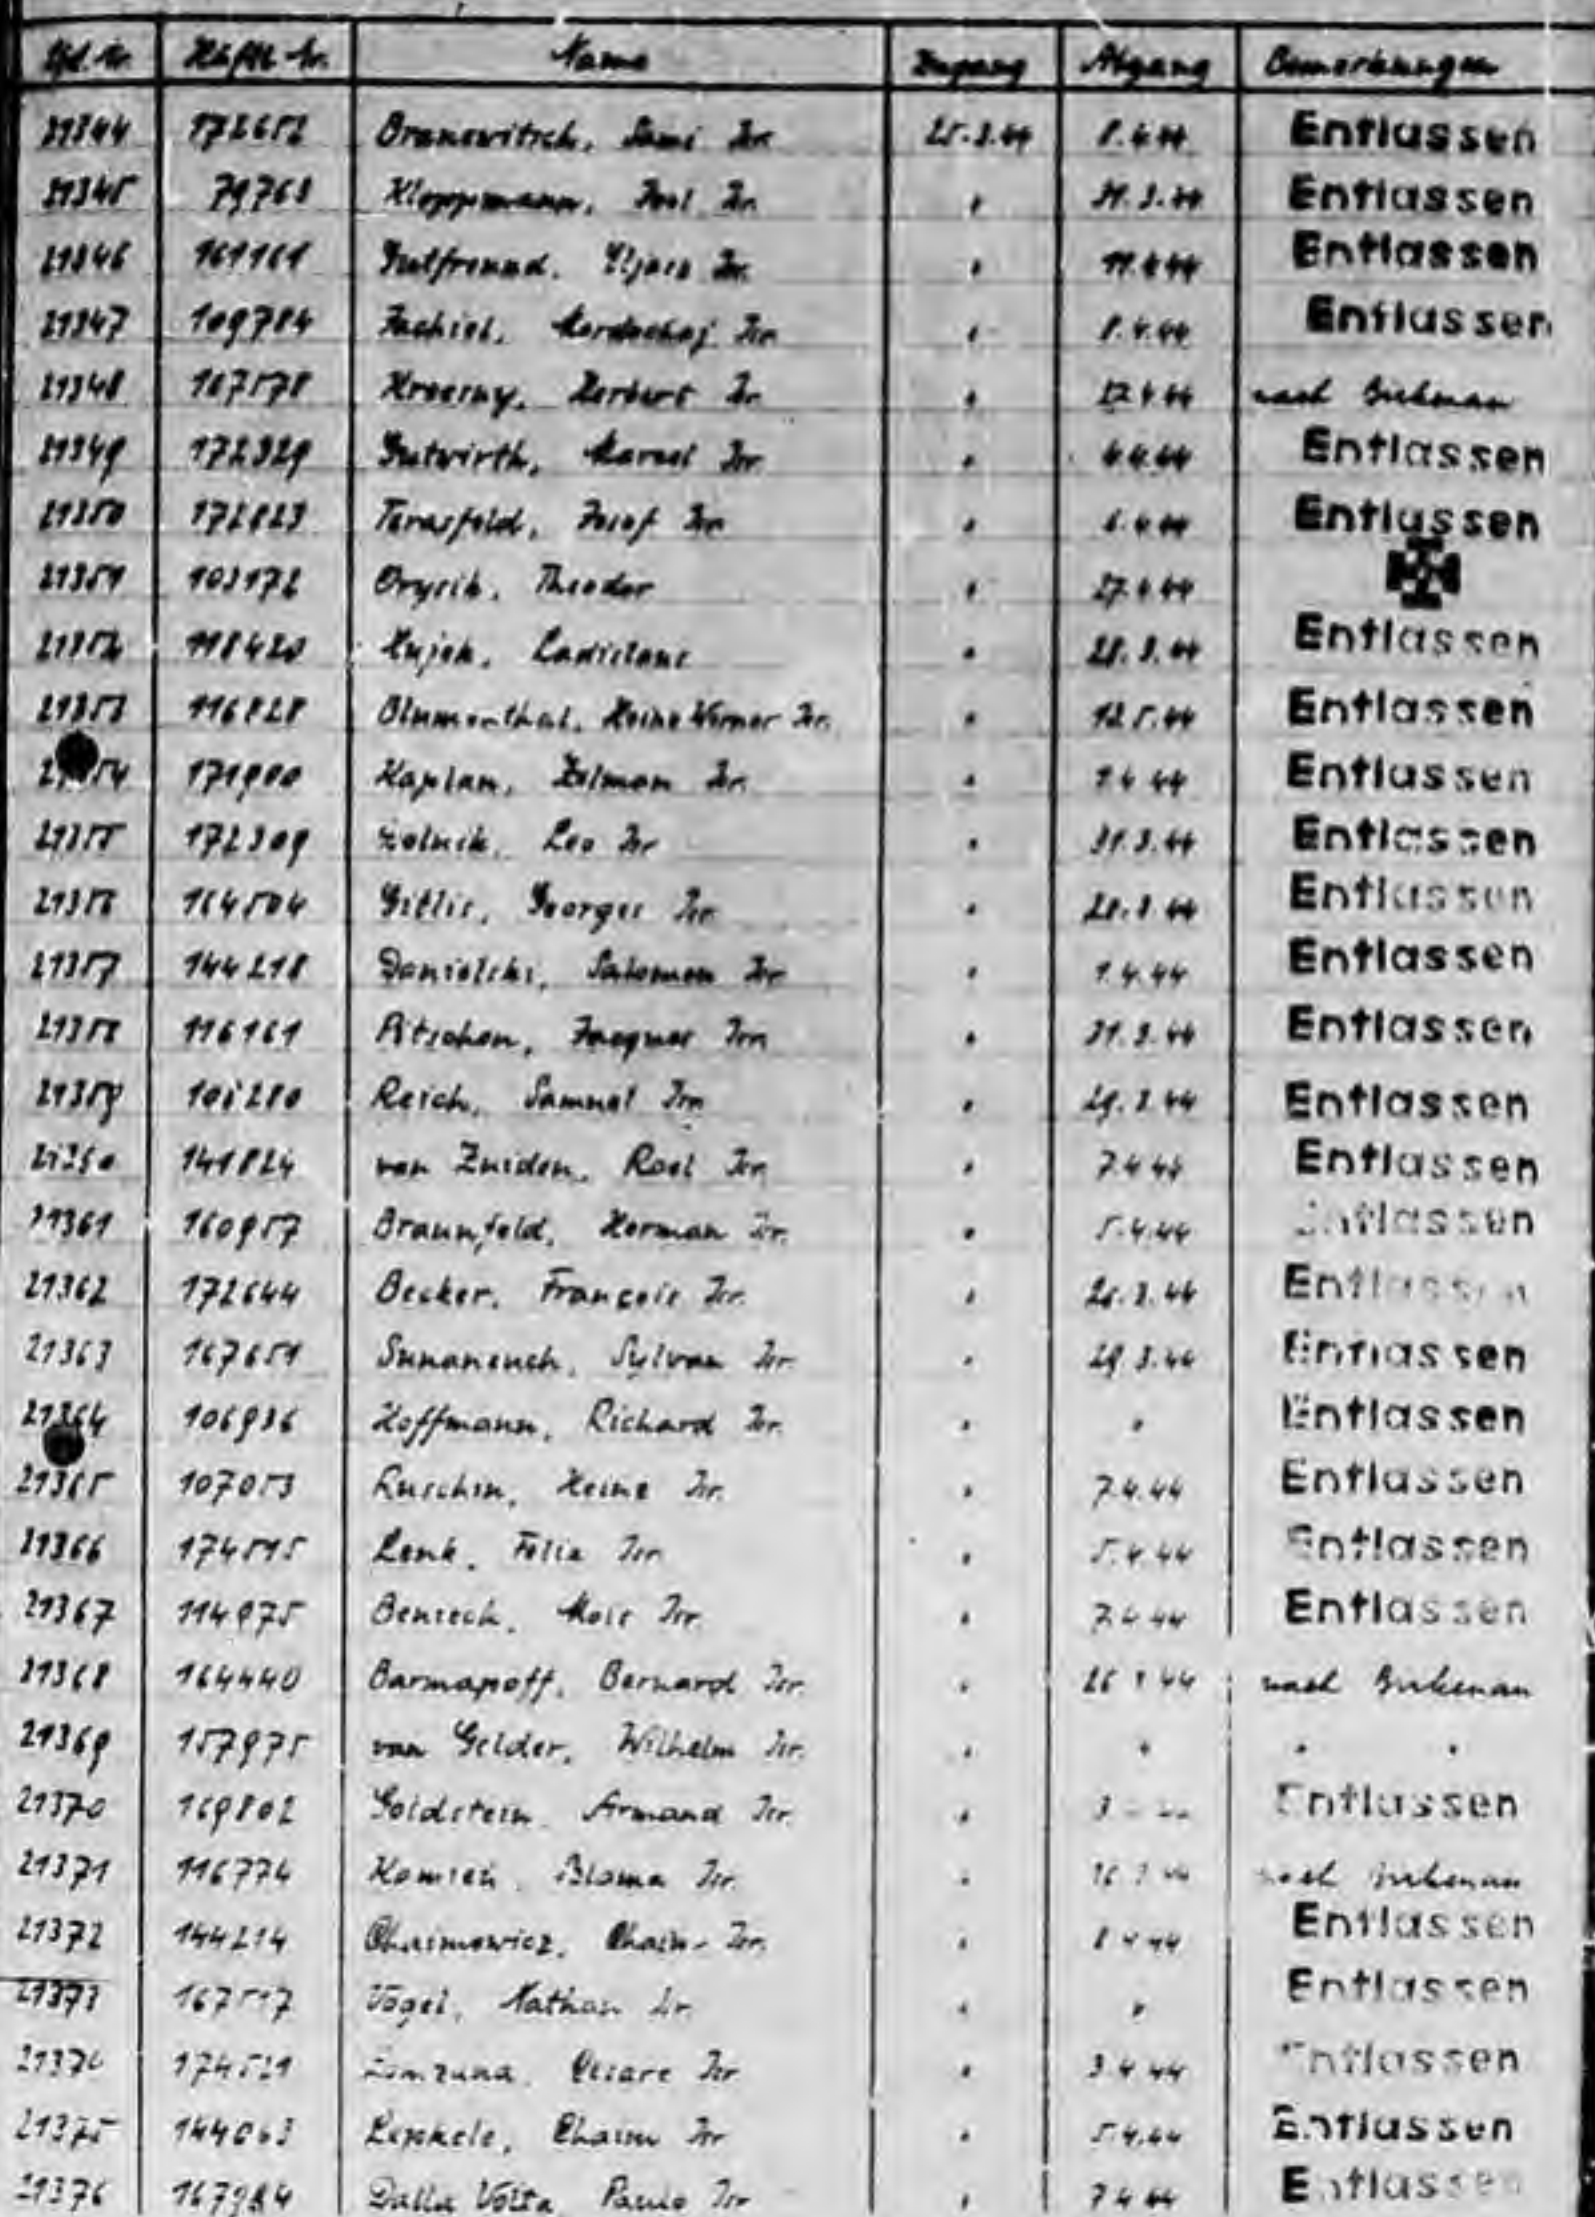 Lfd. Nr. Häftl. Nr. Name Zugang Abgang Bemerkungen
21344 172652 Sami Isr. 25.3.44 8.4.44 Entlassen
21345 79763 Kloppmann, Isr. " 31.3.44 Entlassen
21346 161161 Gutfreund, Isr. " 11.4.44 Entlassen
21347 109784 Jachiel, Mordechaj Isr. " 8.4.44 Entlassen
21348 167578 Herbert Isr. " nach Birkenau
21349 172329 Gutwirth, Marcel Isr. " 4.4.44 Entlassen
21350 172823 Josef Isr. " Entlassen
21351 103172 Theodor " 27.4.44
21352 118420 Hujek, Ladislaus " 28.3.44 Entlassen
21353 116828 Blumenthal, Heinz Werner Isr. " 12.5.44 Entlassen
21354 Kaplan, Isr. " 1.4.44 Entlassen
21355 172309 Leo Isr. " 31.3.44 Entlassen
21356 164504 Gitlis, Georges Isr. " 28.3.44 Entlassen
21357 144218 Danielski, Salomon Isr. " 1.4.44 Entlassen
21358 116161 Pitschon, Jacques Isr. " 31.3.44 Entlassen
21359 Reich, Samuel Isr. " 29.3.44 Entlassen
21360 141824 van Zuiden, Roel Isr. " 7.4.44 Entlassen
21361 160957 Braunfeld, Herman Isr. " 5.4.44 Entlassen
21362 172644 Becker, François Isr. " Entlassen
21363 167651 Sylvan Isr. " 29.3.44 Entlassen
21364 106936 Hoffmann, Richard Isr. " " Entlassen
21365 107053 Luschin, Heinz Isr. " 7.4.44 Entlassen
21366 174515 Lenk, Felix Isr. " 5.4.44 Entlassen
21367 114975 Isr. " 7.4.44 Entlassen
21368 164440 Barmapoff, Bernard Isr. " 26.3.44 nach Birkenau
21369 157975 van Gelder, Wilhelm Isr. " " " "
21370 169802 Goldstein, Armand Isr. " Entlassen
21371 116774 Isr. " nach Birkenau
21372 144214 Chaimowicz, Chaim Isr. " 8.4.44 Entlassen
21373 Vogel, Nathan Isr. " " Entlassen
21374 Cesare Isr. " 3.4.44 Entlassen
21375 144063 Chaim Isr. " 5.4.44 Entlassen
21376 167984 Dalla Volta, Paulo Isr. " 7.4.44 Entlassen